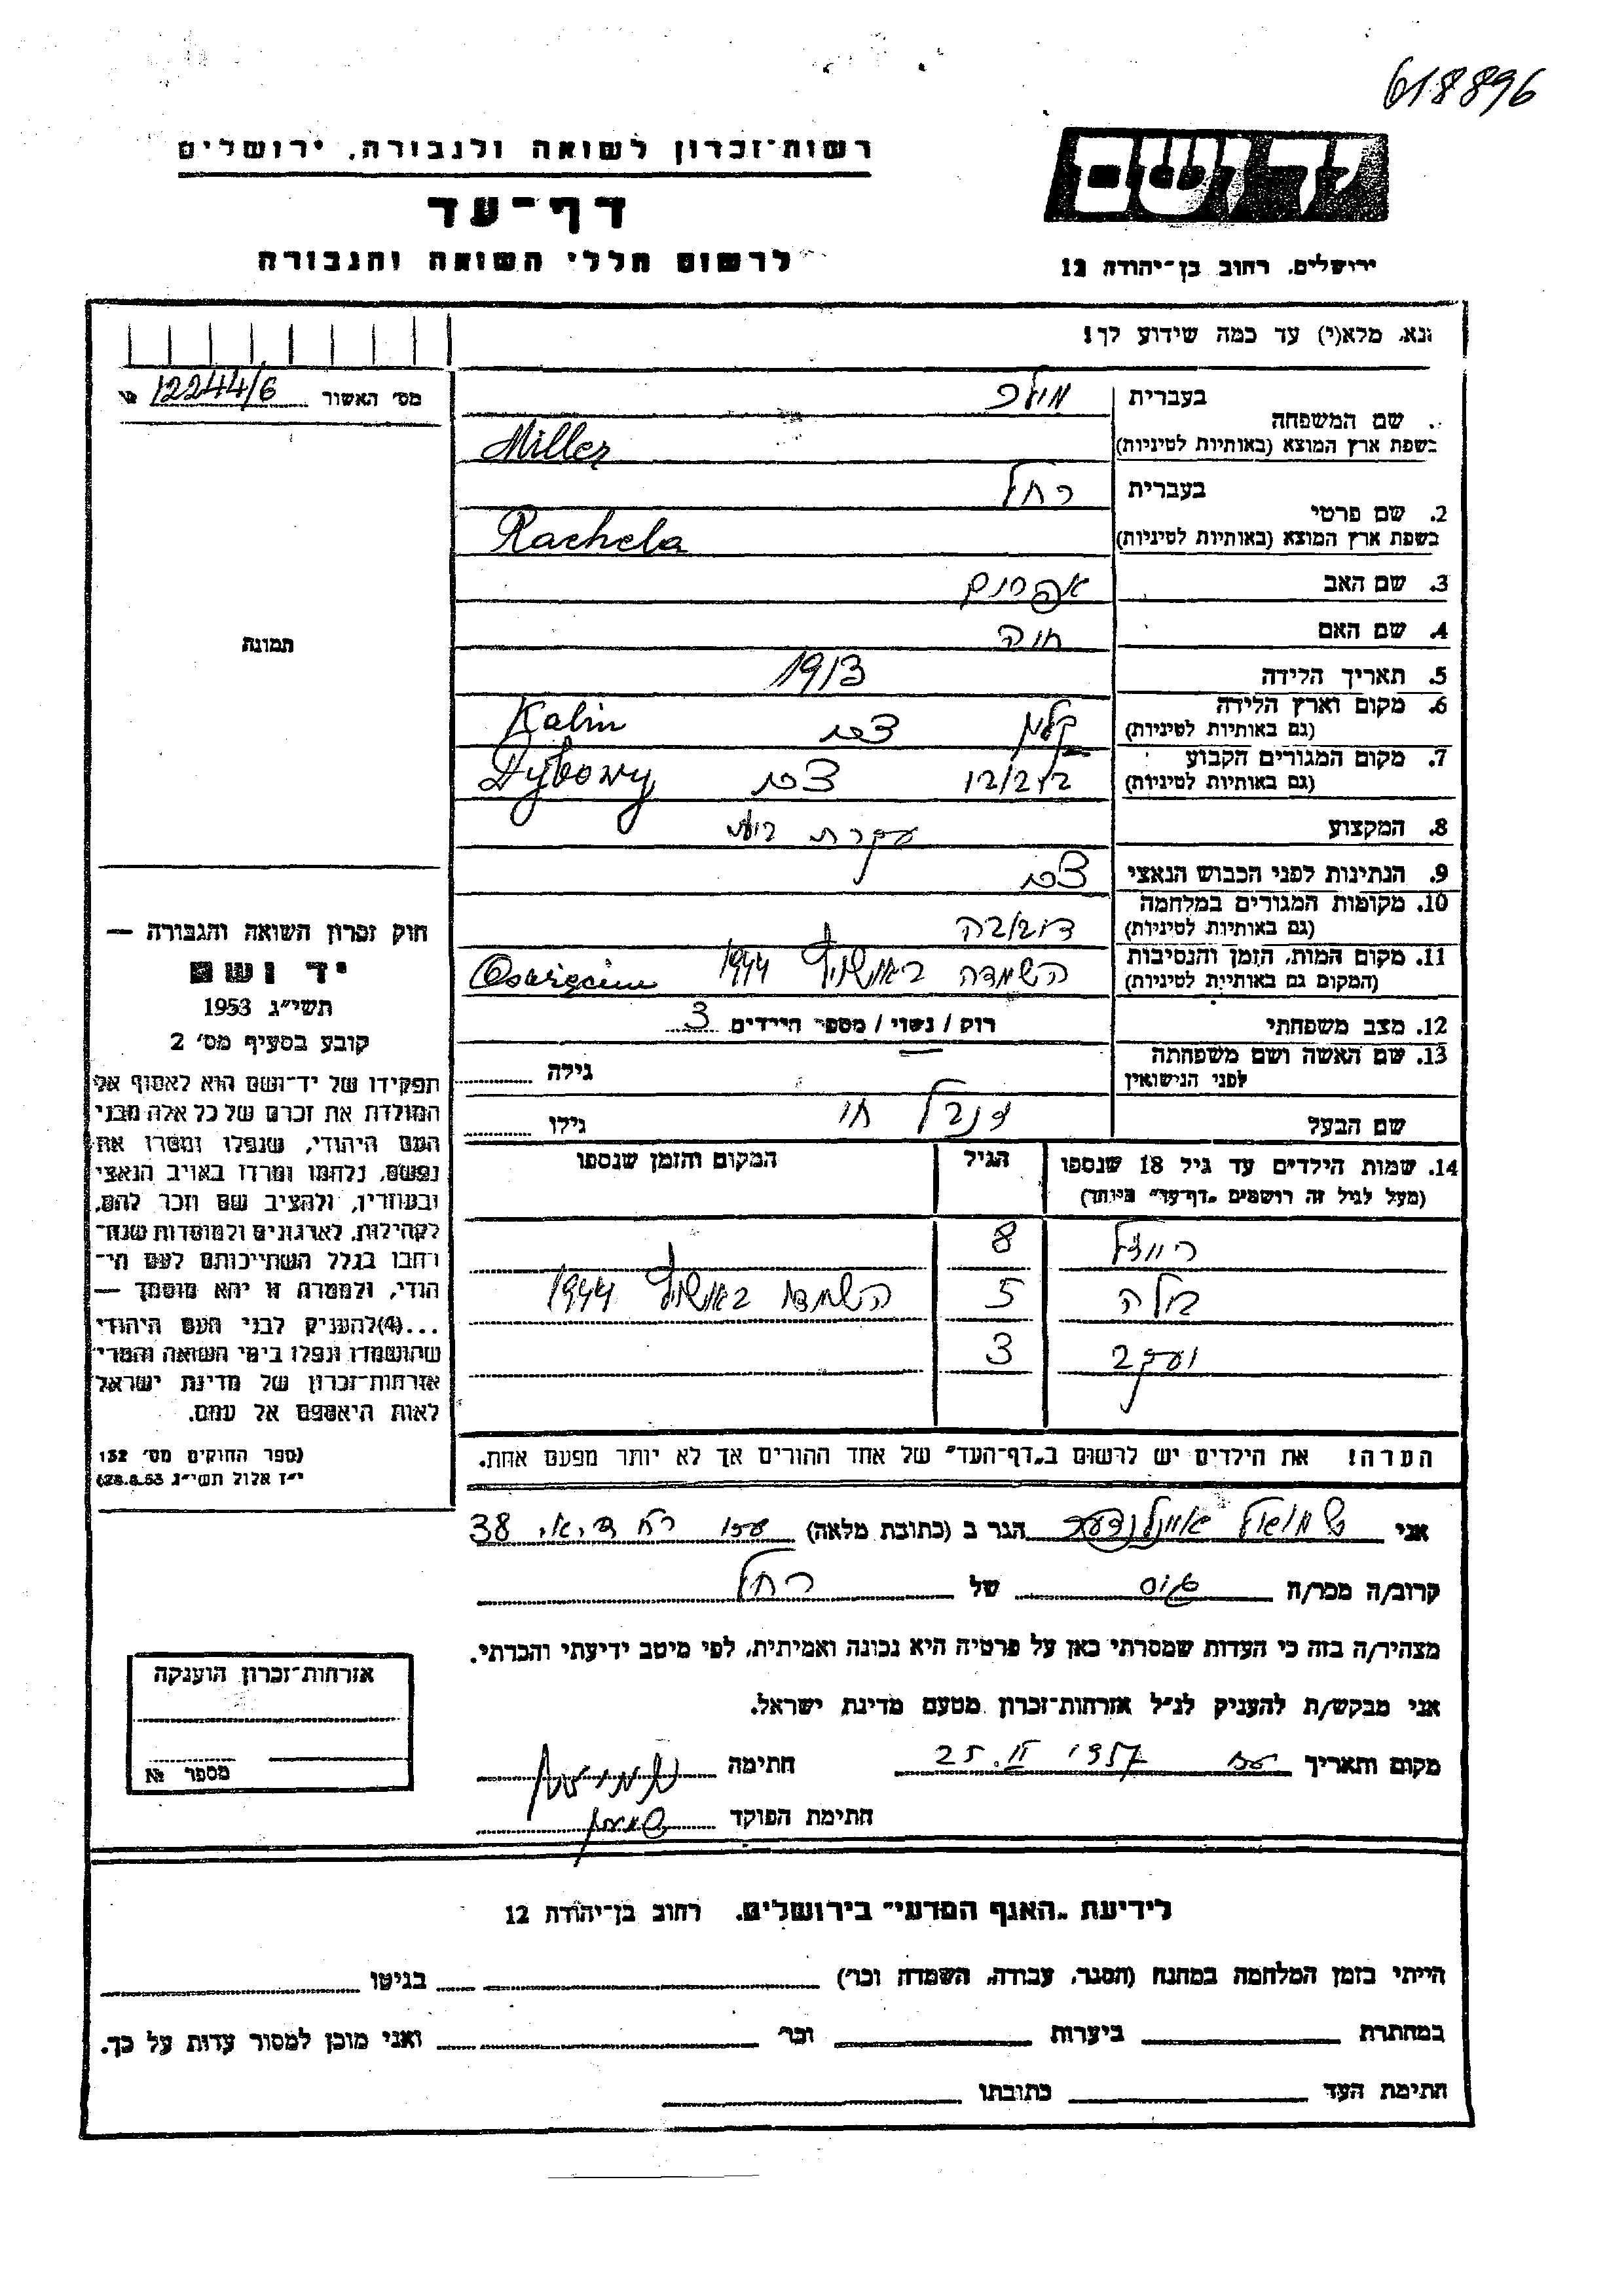 618896
רשות־זכרון לשואה ולגבורה, ירושלים
יד ושם
דף־עד
לרשום חללי השואה והגבורה
ירושלים, רחוב בן־יהודה 12
נא, מלא(י) עד כמה שידוע לך!
מס׳ האשור 12244/6 №
שם המשפחה
בעברית מילר
בשפת ארץ המוצא (באותיות לטיניות) Miller
2. שם פרטי
בעברית רחל
בשפת ארץ המוצא (באותיות לטיניות) Rachela
3. שם האב אפרים
4. שם האם חוה
תמונה
5. תאריך הלידה 1913
6. מקום וארץ הלידה
(גם באותיות לטיניות) פולין Kalin
7. מקום המגורים הקבוע
(גם באותיות לטיניות) פולין Dybowy
8. המקצוע עקרת בית
9. הנתינות לפני הכבוש הנאצי
10. מקומות המגורים במלחמה
(גם באותיות לטיניות)
11. מקום המות, הזמן והנסיבות
(המקום גם באותיות לטיניות) השמדה באושויץ 1944 Oswięcim
12. מצב משפחתי רוק / נשוי / מספר הילדים 3
13. שם האשה ושם משפחתה
לפני הנישואין גילה
שם הבעל גילו
14. שמות הילדים עד גיל 18 שנספו
(מעל לגיל זה רושמים „דף־עד״ מיוחד)
הגיל
המקום והזמן שנספו
8
בלה 5 השמדה באושויץ 1944
יעקב 3
הערה! את הילדים יש לרשום ב„דף־העד״ של אחד ההורים אך לא יותר מפעם אחת.
חוק זכרון השואה והגבורה —
יד ושם
תשי״ג 1953
קובע בסעיף מס׳ 2
תפקידו של יד־ושם הוא לאסוף אל
המולדת את זכרם של כל אלה מבני
העם היהודי, שנפלו ומסרו את
נפשם, נלחמו ומרדו באויב הנאצי
ובעוזריו, ולהציב שם וזכר להם,
לקהילות, לארגונים ולמוסדות שנח־
רבו בגלל השתייכותם לעם הי־
הודי, ולמטרה זו יהא מוסמך —
...(4)להעניק לבני העם היהודי
שהושמדו ונפלו בימי השואה והמרי
אזרחות־זכרון של מדינת ישראל
לאות היאספם אל עמם.
(ספר החוקים מס׳ 132
י״ז אלול תשי״ג 28.8.53)
אני שמואל הגר ב (כתובת מלאה) 38
קרוב/ה מכר/ה גיס של רחל
מצהיר/ה בזה כי העדות שמסרתי כאן על פרטיה היא נכונה ואמיתית, לפי מיטב ידיעתי והכרתי.
אני מבקש/ת להעניק לנ״ל אזרחות־זכרון מטעם מדינת ישראל.
מקום ותאריך 25. II. 1957 חתימה
חתימת הפוקד
אזרחות־זכרון הוענקה
מספר №
לידיעת „האגף המדעי״ בירושלים, רחוב בן־יהודה 12
הייתי בזמן המלחמה במחנה (הסגר, עבודה, השמדה וכו׳) בגיטו
במחתרת ביערות וכו׳ ואני מוכן למסור עדות על כך.
חתימת העד כתובתו